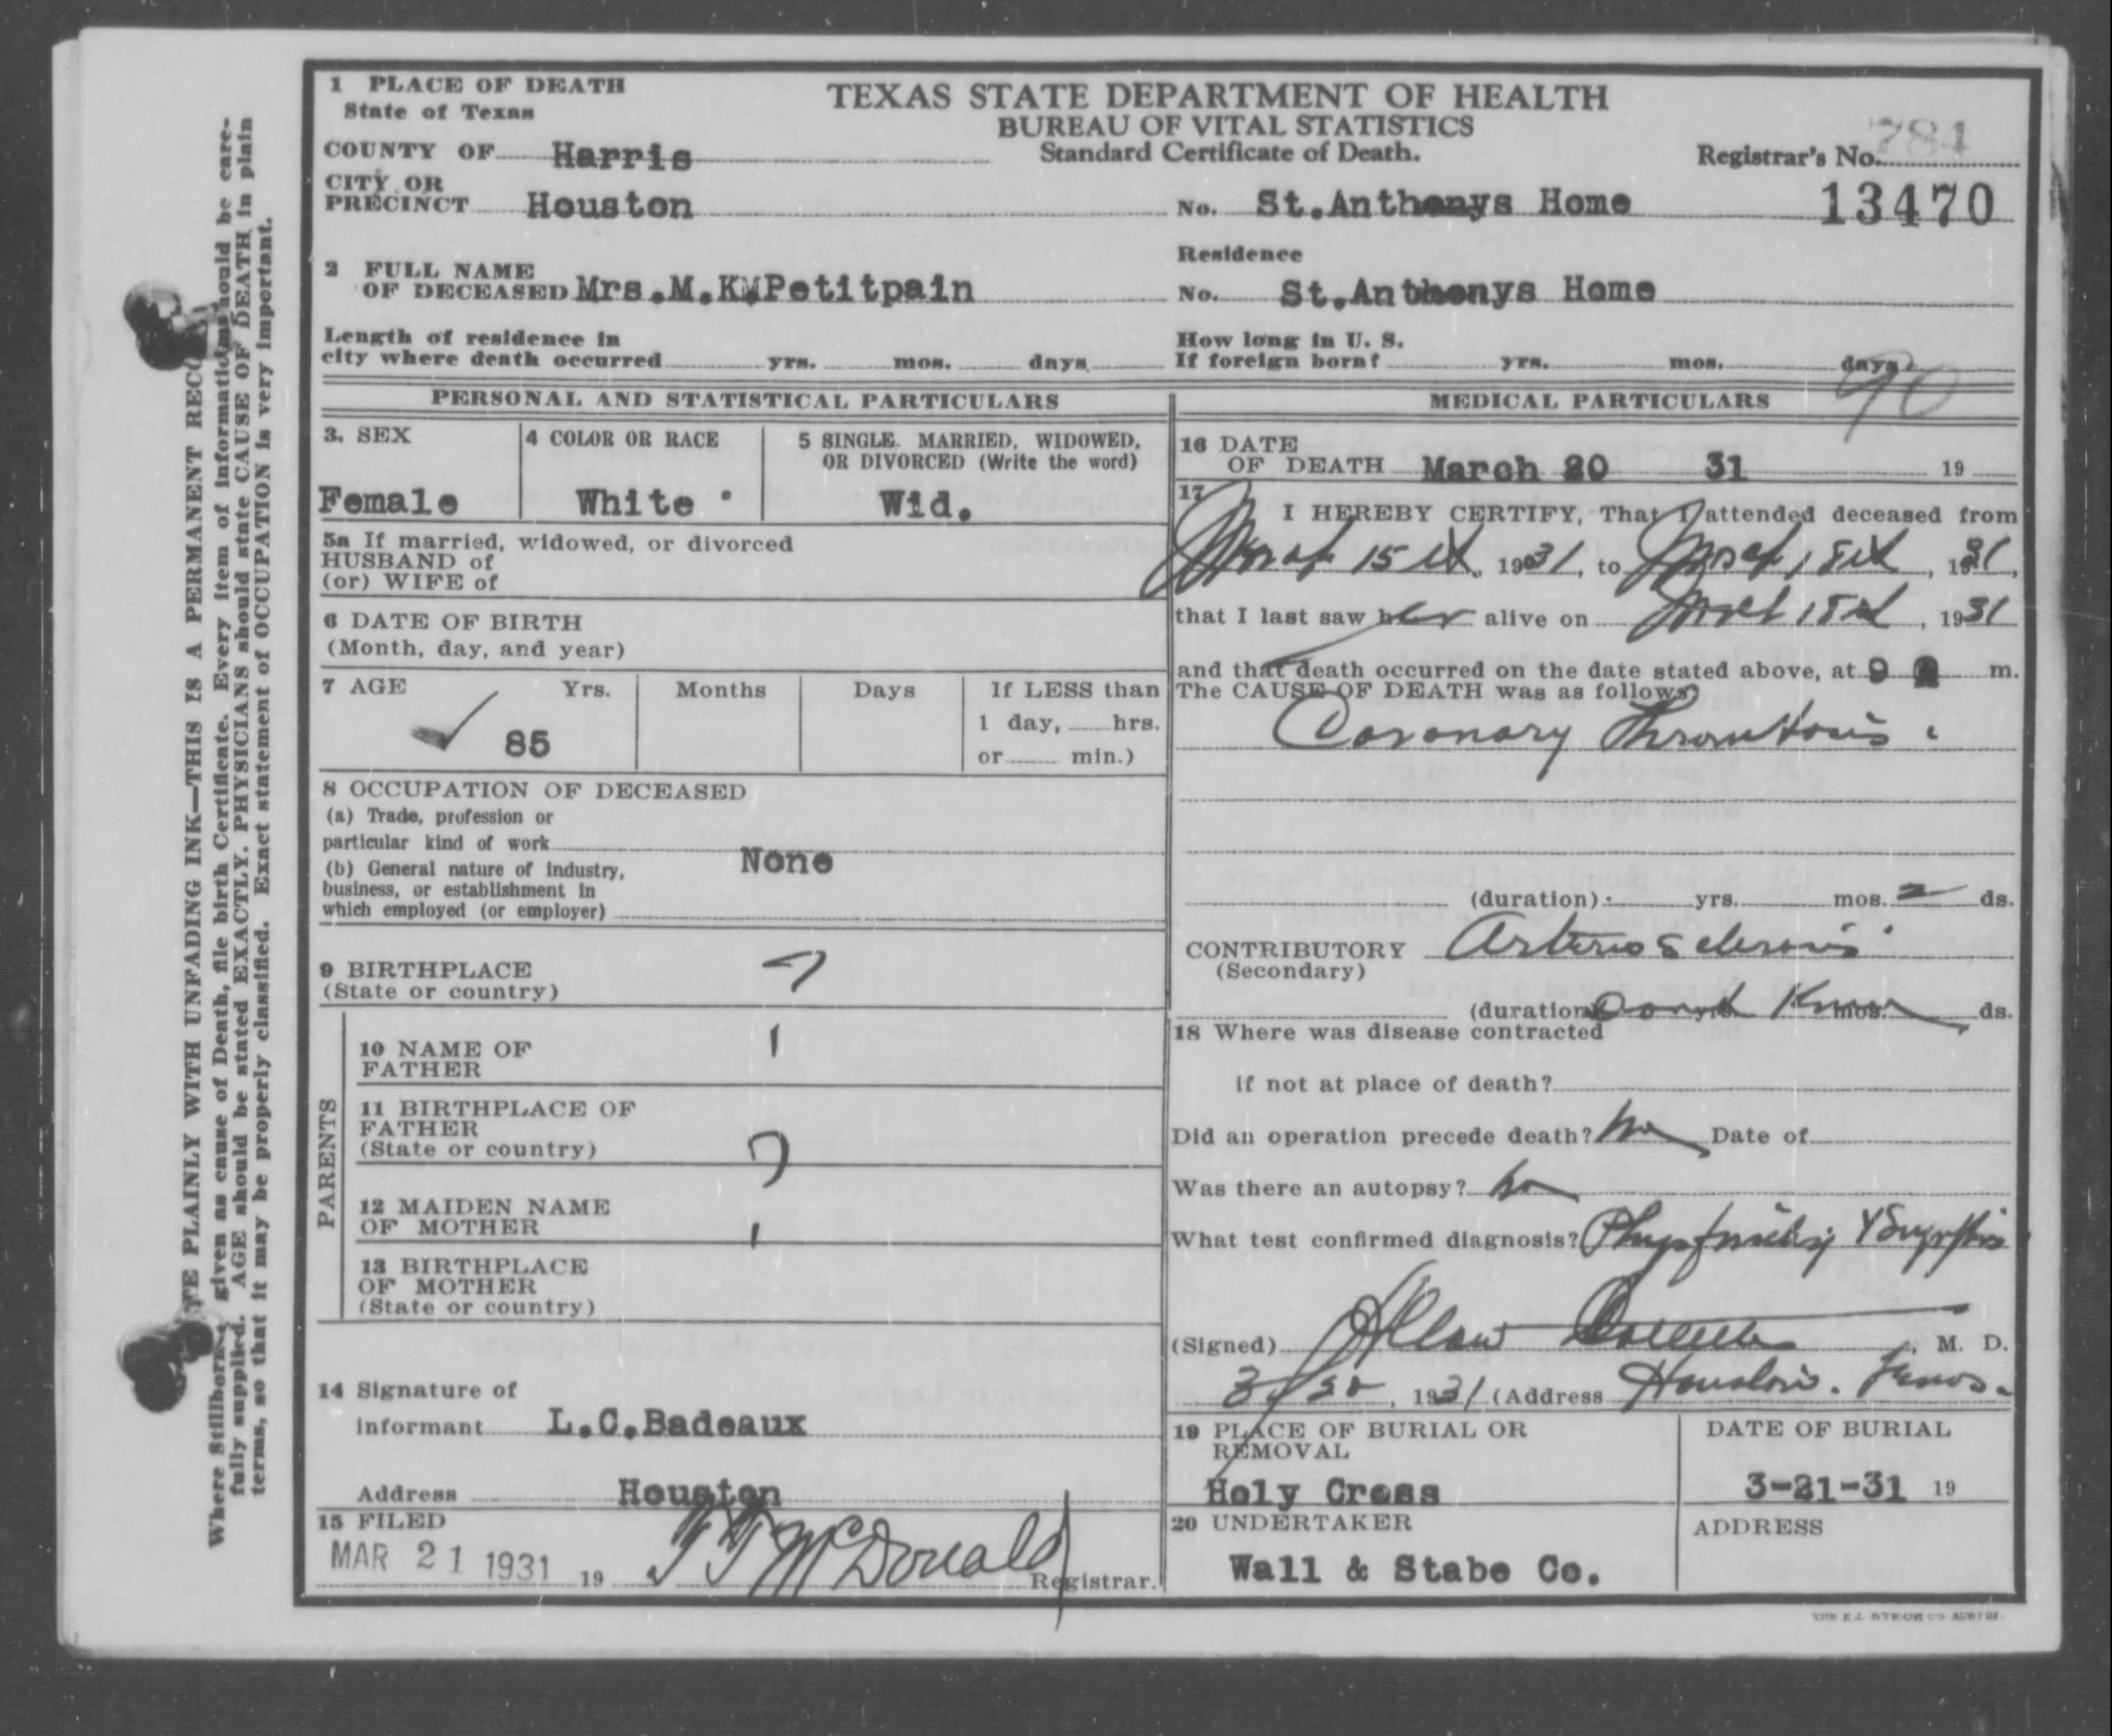 1 PLACE OF DEATH
State of Texas
COUNTY OF Harris
CITY OR
PRECINCT Houston
TEXAS STATE DEPARTMENT OF HEALTH
BUREAU OF VITAL STATISTICS
Standard Certificate of Death.
Registrar's No. 784
13470
No. St.Anthonys Home
2 FULL NAME
OF DECEASED Mrs.M.K.Petitpain
Residence
No. St.Anthonys Home
Length of residence in
city where death occurred yrs. mos. days
How long in U. S.
If foreign born? yrs. mos. days
90
PERSONAL AND STATISTICAL PARTICULARS
3. SEX
Female
4 COLOR OR RACE
White
5 SINGLE. MARRIED, WIDOWED,
OR DIVORCED (Write the word)
Wid.
5a If married, widowed, or divorced
HUSBAND of
(or) WIFE of
6 DATE OF BIRTH
(Month, day, and year)
7 AGE Yrs. Months Days If LESS than
1 day, hrs.
85
or min.)
8 OCCUPATION OF DECEASED
(a) Trade, profession or
particular kind of work
None
(b) General nature of industry,
business, or establishment in
which employed (or employer)
9 BIRTHPLACE
(State or country) ?
PARENTS
10 NAME OF
FATHER
11 BIRTHPLACE OF
FATHER
(State or country) ?
12 MAIDEN NAME
OF MOTHER
13 BIRTHPLACE
OF MOTHER
(State or country)
14 Signature of
informant L.C.Badeaux
Address Houston
15 FILED
MAR 21 1931 19 T T McDonald Registrar.
MEDICAL PARTICULARS
16 DATE
OF DEATH March 20 31 19
17
I HEREBY CERTIFY, That I attended deceased from
March 15th, 1931, to March 18th, 1931,
that I last saw her alive on March 18th, 1931
and that death occurred on the date stated above, at 9 m.
The CAUSE OF DEATH was as follows:
Coronary Thrombosis.
(duration) yrs. mos. 2 ds.
CONTRIBUTORY Arteriosclerosis
(Secondary)
(duration) Don't Know yrs. mos. ds.
18 Where was disease contracted
if not at place of death?
Did an operation precede death? No Date of
Was there an autopsy? No
What test confirmed diagnosis?
(Signed) , M. D.
3/20, 1931 (Address Houston. Texas.
19 PLACE OF BURIAL OR
REMOVAL
Holy Cross
DATE OF BURIAL
3-21-31 19
20 UNDERTAKER
Wall & Stabe Co.
ADDRESS
THE E.L. STECK CO AUSTIN.
TE PLAINLY WITH UNFADING INK—THIS IS A PERMANENT RECO
Where Stillborn is given as cause of Death, file birth Certificate. Every item of information should be care-
fully supplied. AGE should be stated EXACTLY. PHYSICIANS should state CAUSE OF DEATH in plain
terms, so that it may be properly classified. Exact statement of OCCUPATION is very important.